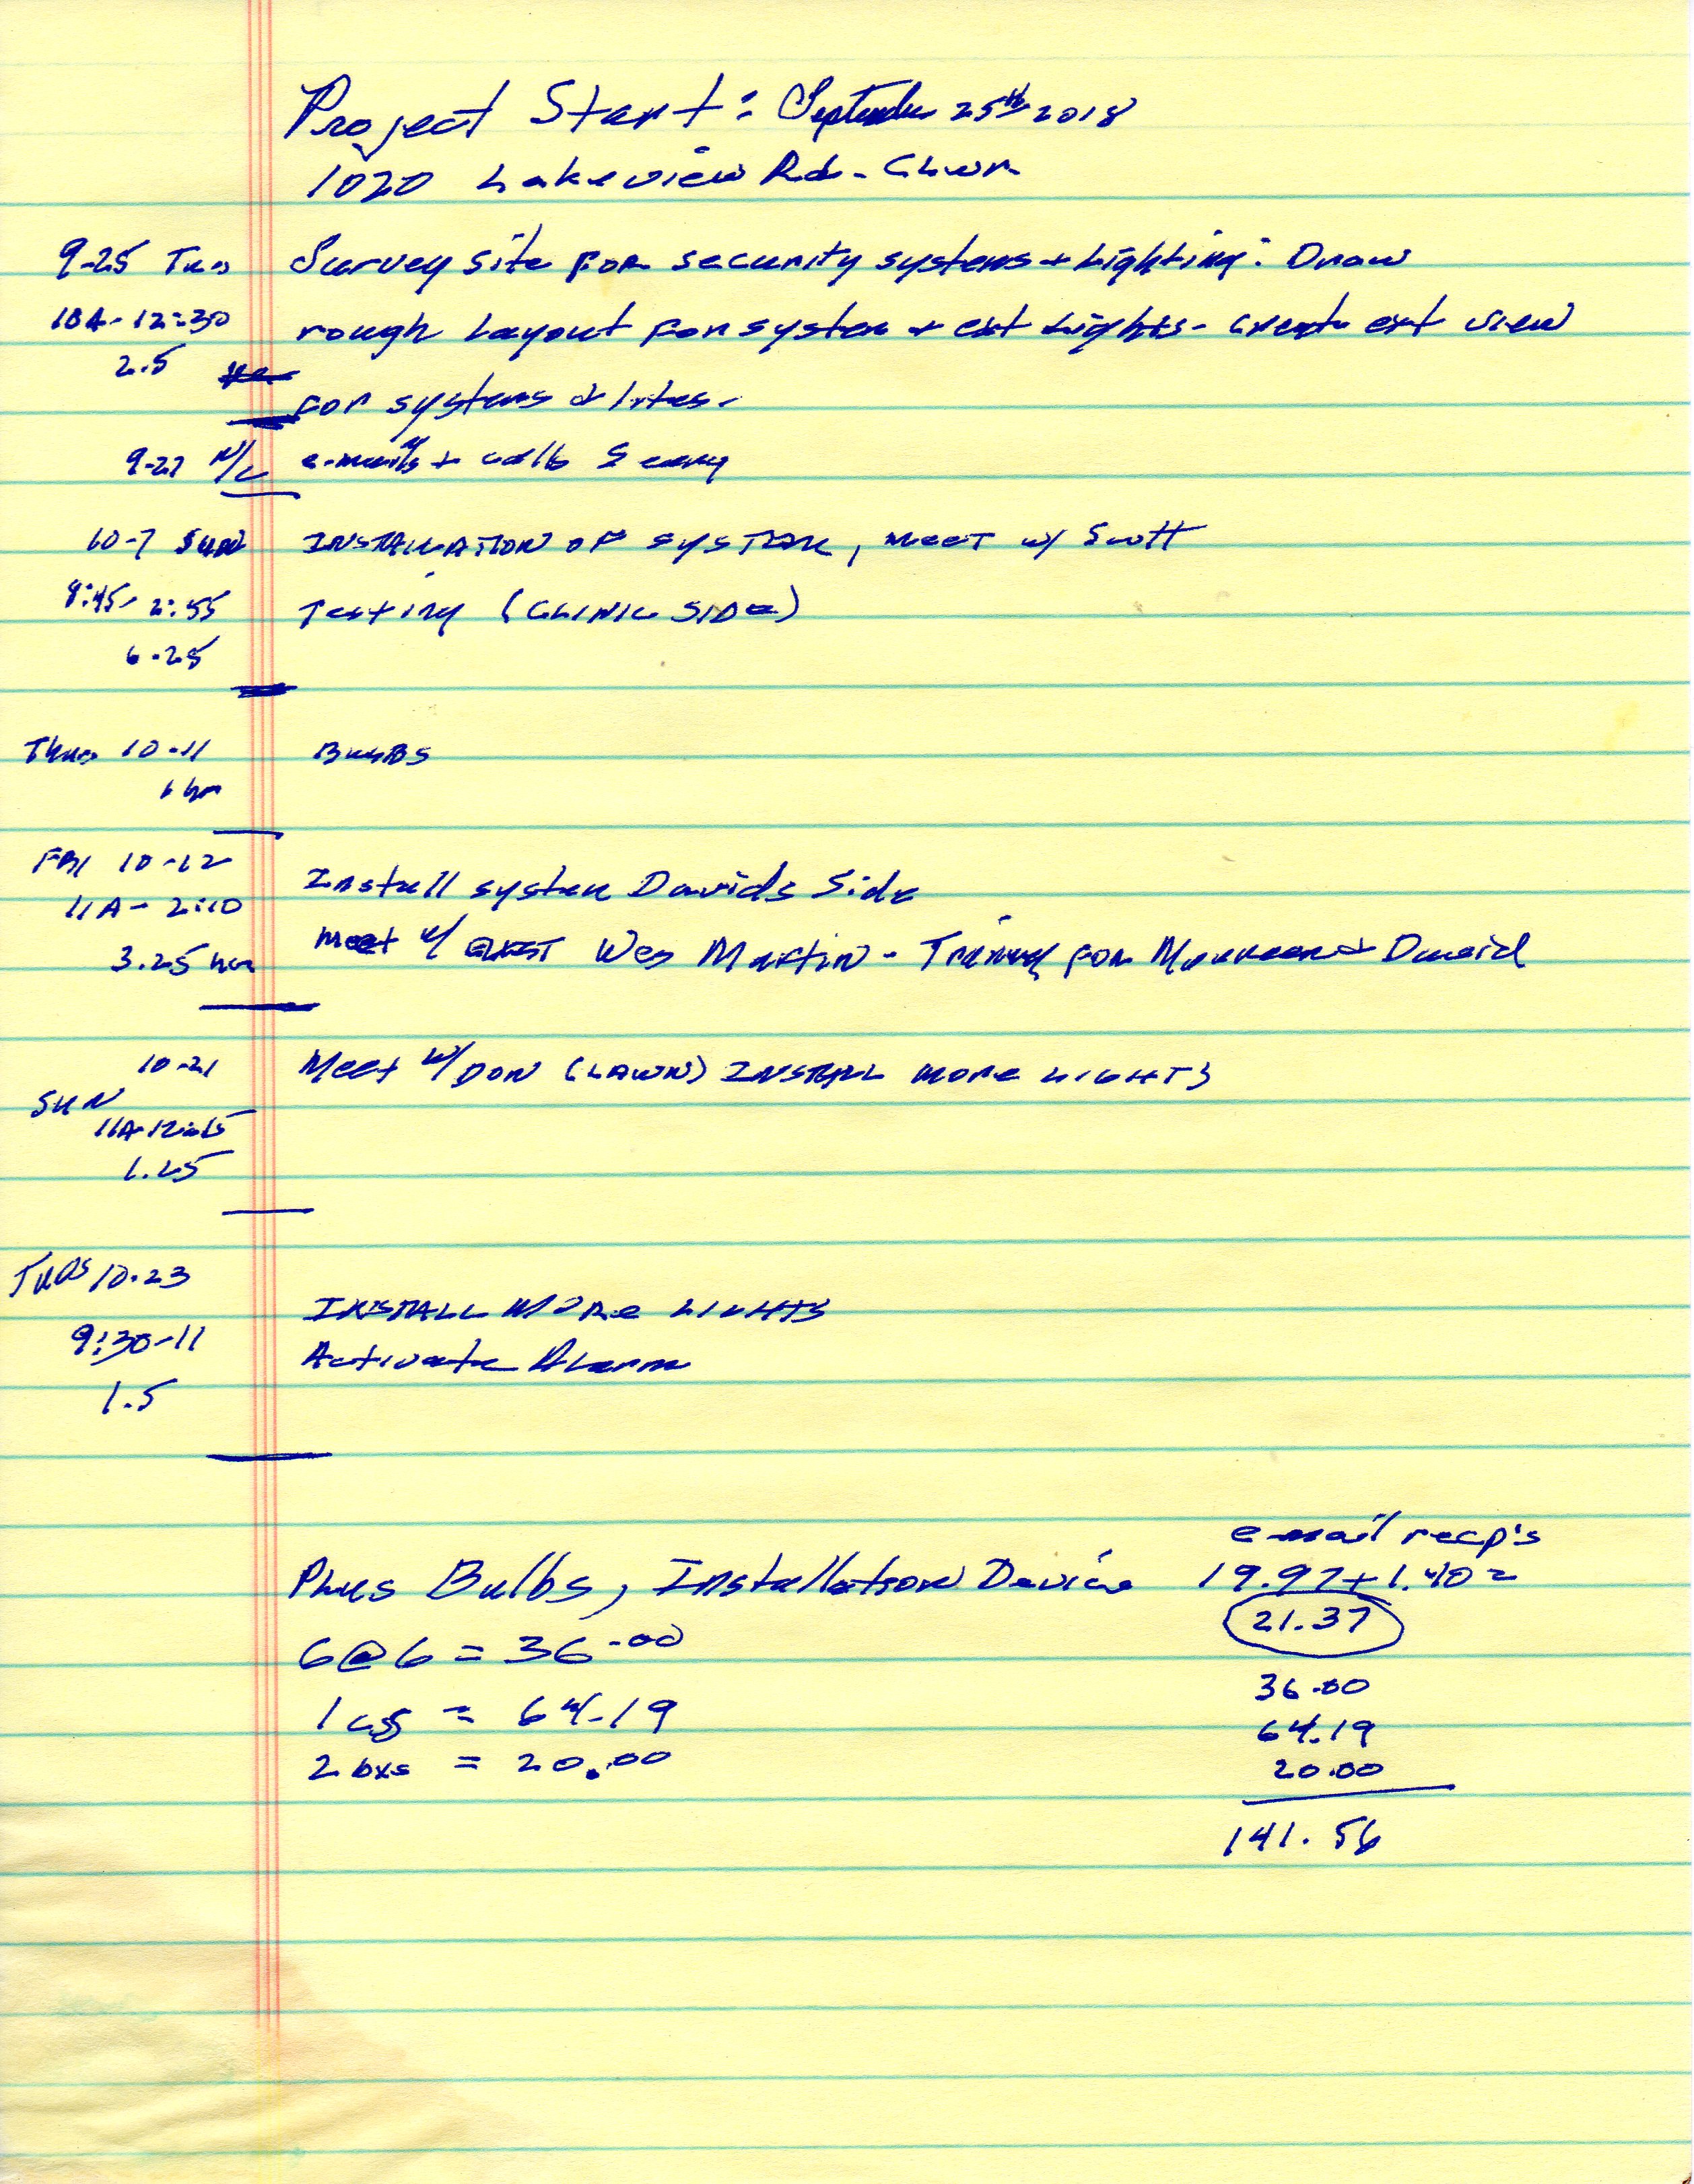 Project Start: September 25th 2018
1020 Lakeview Rd. - Clwr.
9-25 Tues Survey site for security systems + Lighting: Draw
10A - 12:30 rough Layout for system + ext Lights - create ext view
2.5
for systems & lites.
9-27 N/C e-mails + calls
10-7 SUN INSTALLATION OF SYSTEM, MEET w/ Scott
8:45 - 2:55 Testing (CLINIC SIDE)
6.25
Thurs 10-11 BULBS
1 hr
FRI 10-12
11A - 2:10 Install system Davids Side
3.25 hrs Meet w/ Wes Martin - Training for Maureen + David
10-21 Meet w/ DON (LAWN) INSTALL MORE LIGHTS
SUN
11A-12:15
1.25
TUES 10.23
INSTALL MORE LIGHTS
9:30-11
Activate Alarm
1.5
e-mail recp's
Plus Bulbs, Installation Device 19.97 + 1.40 =
21.37
6 @ 6 = 36.00
36.00
1 cs = 64.19
64.19
2 bxs = 20.00
20.00
141.56